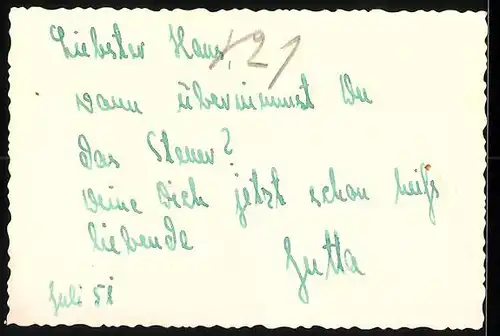 Liebster Hans, 21
wann übernimmst Du
das Steuer?
Deine Dich jetzt schon heiß
liebende
Jutta
Juli 51